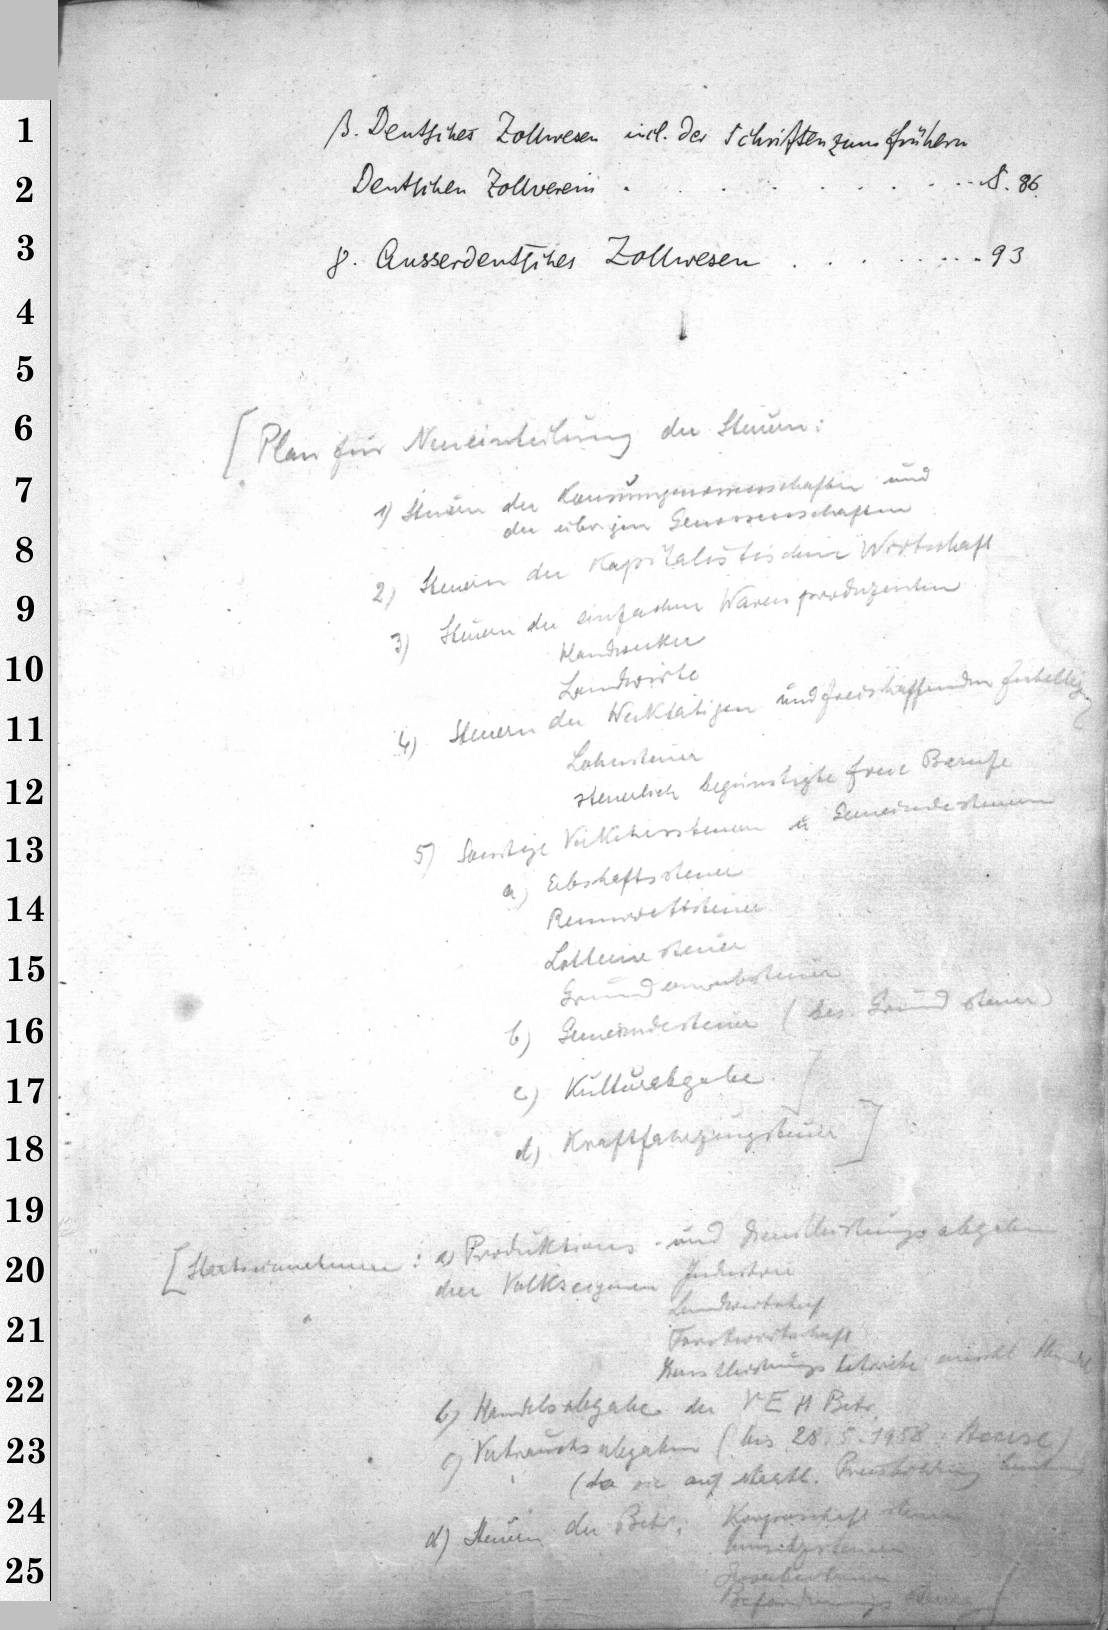 β. Deutsches Zollwesen incl. der Schriften zum frühern
Deutschen Zollverein . . . . . . . . . . . S. 86.
γ. Ausserdeutsches Zollwesen . . . . . . . . . 93
[Plan für Neueinteilung der Steuern:
1) Steuern der Konsumgenossenschaften und
der übrigen Genossenschaften
2) Steuern der kapitalistischen Wirtschaft
3) Steuern der einfachen Warenproduzenten
Handwerker
Landwirte
4) Steuern der Werktätigen und freischaffenden Intellig.
Lohnsteuer
steuerlich begünstigte freie Berufe
5) Sonstige Verkehrssteuern u Gemeindesteuern
a) Erbschaftssteuer
Rennwettsteuer
Lotteriesteuer
Grunderwerbsteuer
b) Gemeindesteuer (bes. Grundsteuer)
c) Kulturabgabe
d) Kraftfahrzeugsteuer ]
[Staatseinnahmen: a) Produktions- und Dienstleistungsabgaben
der Volkseigenen Industrie
Landwirtschaft
Forstwirtschaft
Dienstleistungsbetriebe einschl. Handel
b) Handelsabgabe der VEH Betr.
c) Verbrauchsabgaben (bis 28.5.1958 : Akzise)
(da sie auf staatl. Preisbildung
d) Steuern der Betr.: Körperschaftsteuer
Umsatzsteuer
Gewerbesteuer
Beförderungssteuer ]
1
2
3
4
5
6
7
8
9
10
11
12
13
14
15
16
17
18
19
20
21
22
23
24
25